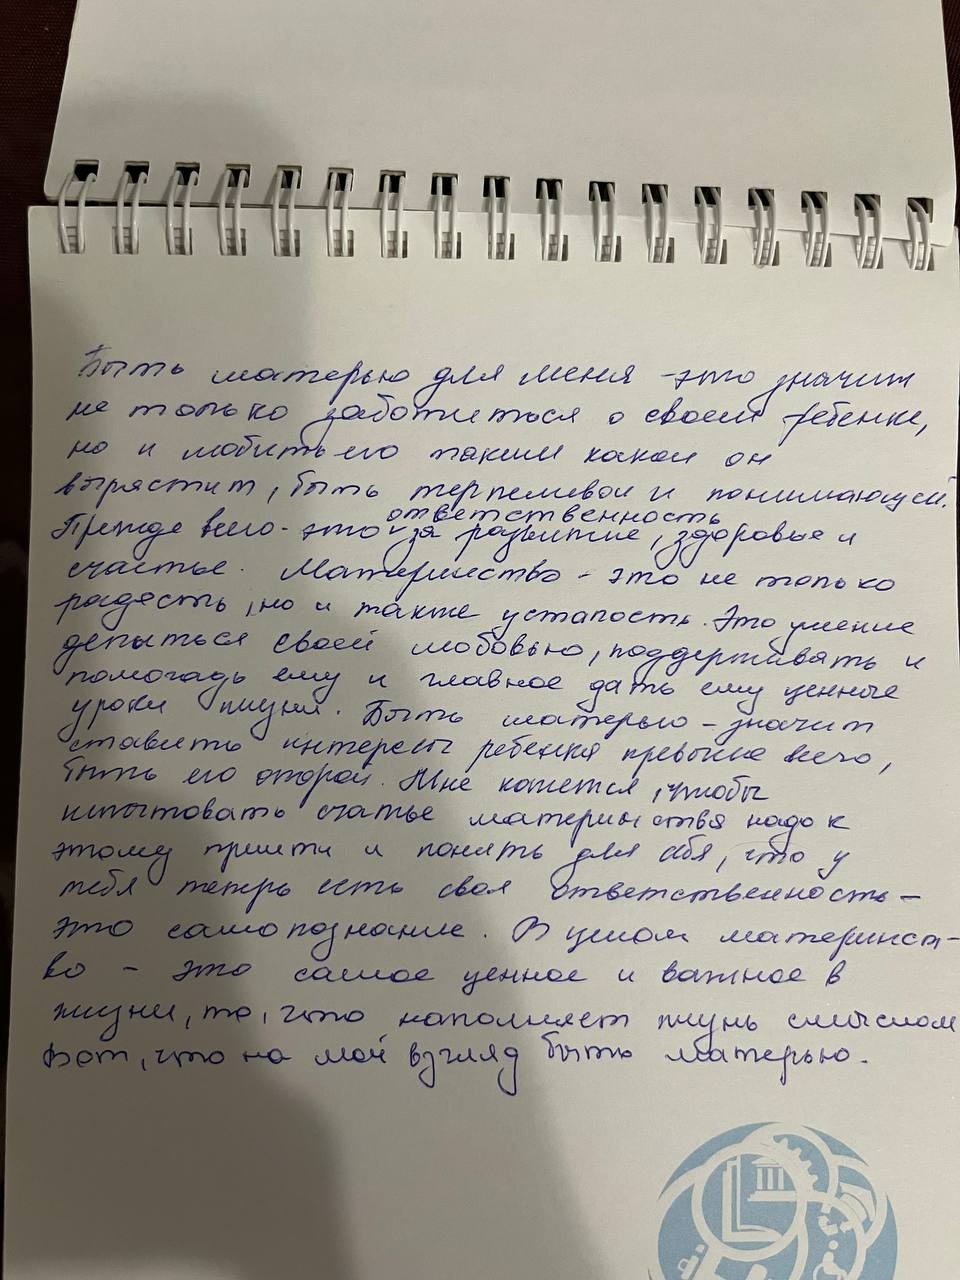 Быть матерью для меня - это значит
не только заботиться о своем ребенке,
но и любить его таким какой он
вырастит, быть терпеливой и понимающей.
ответственность
Прежде всего - это за развитие, здоровье и
счастье. Материнство - это не только
радость, но и также усталость. Это умение
делиться своей любовью, поддерживать и
помогадь ему и главное дать ему ценные
уроки жизни. Быть матерью - значит
ставить интересы ребенка превыше всего,
быть его опорой. Мне кажется, чтобы
испытовать счатье материнства надо к
этому прийти и понять для себя, что у
тебя теперь есть своя ответственность -
это самопознание. В целом материнст-
во - это самое ценное и важное в
жизни, то, что наполняет жизнь смыслом
Вот, что на мой взгляд быть матерью.